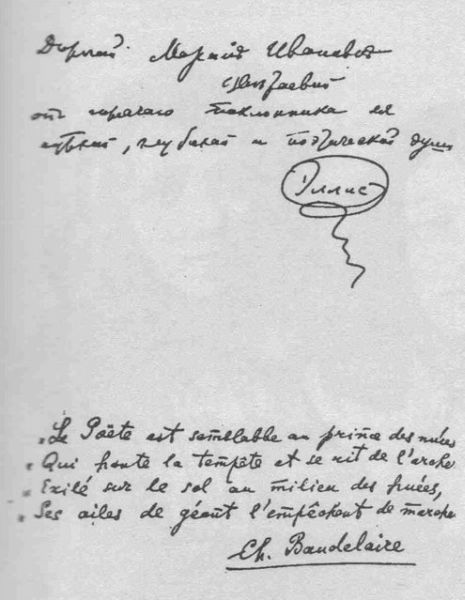 Дорогой Маринѣ Ивановнѣ
Цвѣтаевой
отъ горячаго поклонника ея
чуткой, глубокой и поэтической души
Эллисъ
"Le Poëte est semblable au prince des nuées
" Qui hante la tempête et se rit de l'arche
" Exilé sur le sol au milieu des huées,
" Ses ailes de géant l'empêchent de marche
Ch. Baudelaire